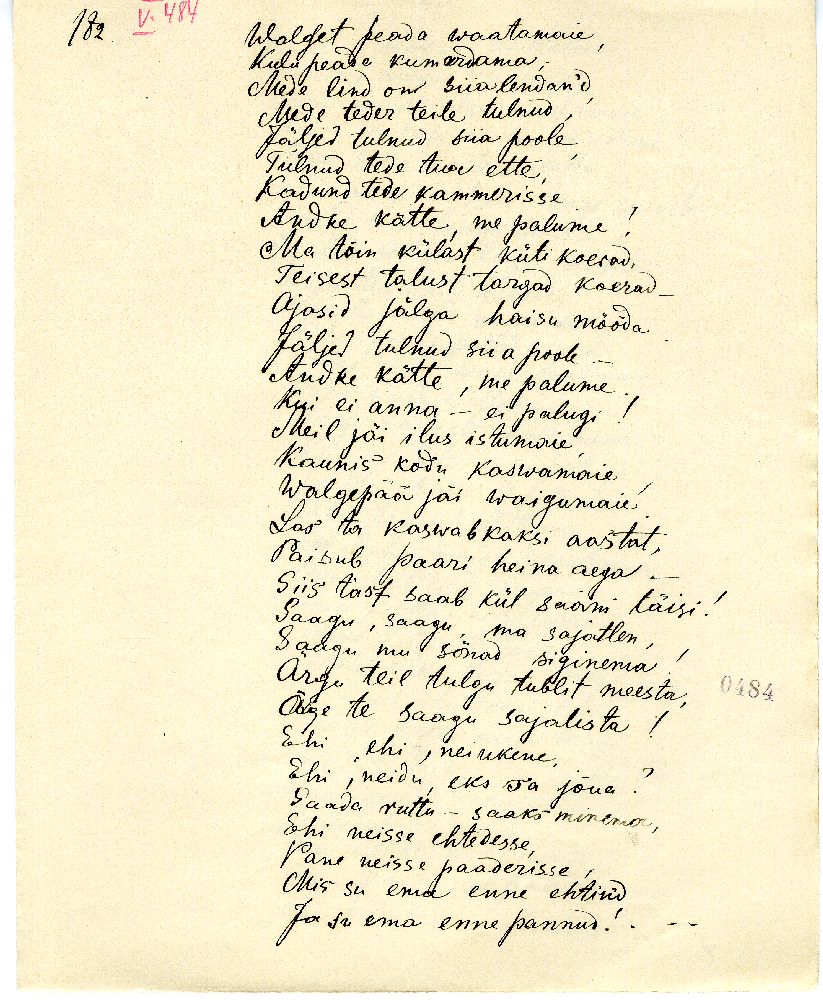 182
V. 484
Walget peada waatamaie,
Kulu peada kumardama,
Mede lind on siia lendan'd,
Mede teder teile tulnud,
Jäljed tulnud siia poole,
Tulnud tede tua ette,
Kadund tede kammerisse
Andke kätte, me palume!
Ma tõin külast küti koerad,
Teisest talust targad koerad –
Ajasid jälga haisu mööda
Jäljed tulnud siia poole –
Andke kätte, me palume.
Kui ei anna – ei palugi!
Meil jäi ilus istumaie,
Kaunis kodu kaswamaie,
Walgepää jäi waigumaie!
Las ta kaswab kaksi aastat,
Paisub paari heina aega –
Siis tast saab kül saani täisi!
Saagu, saagu, ma sajatlen,
Saagu mu sõnad siginema!
Ärgu teil tulgu tublit meesta,
Õige te saagu sajalista!
0484
Ehi, ehi, neiukene,
Ehi, neidu, eks sa jõua?
Saada ruttu – saaks minema,
Ehi neisse ehtedesse,
Pane neisse paaderisse,
Mis su ema enne ehtind
Ja su ema enne pannud! . – –